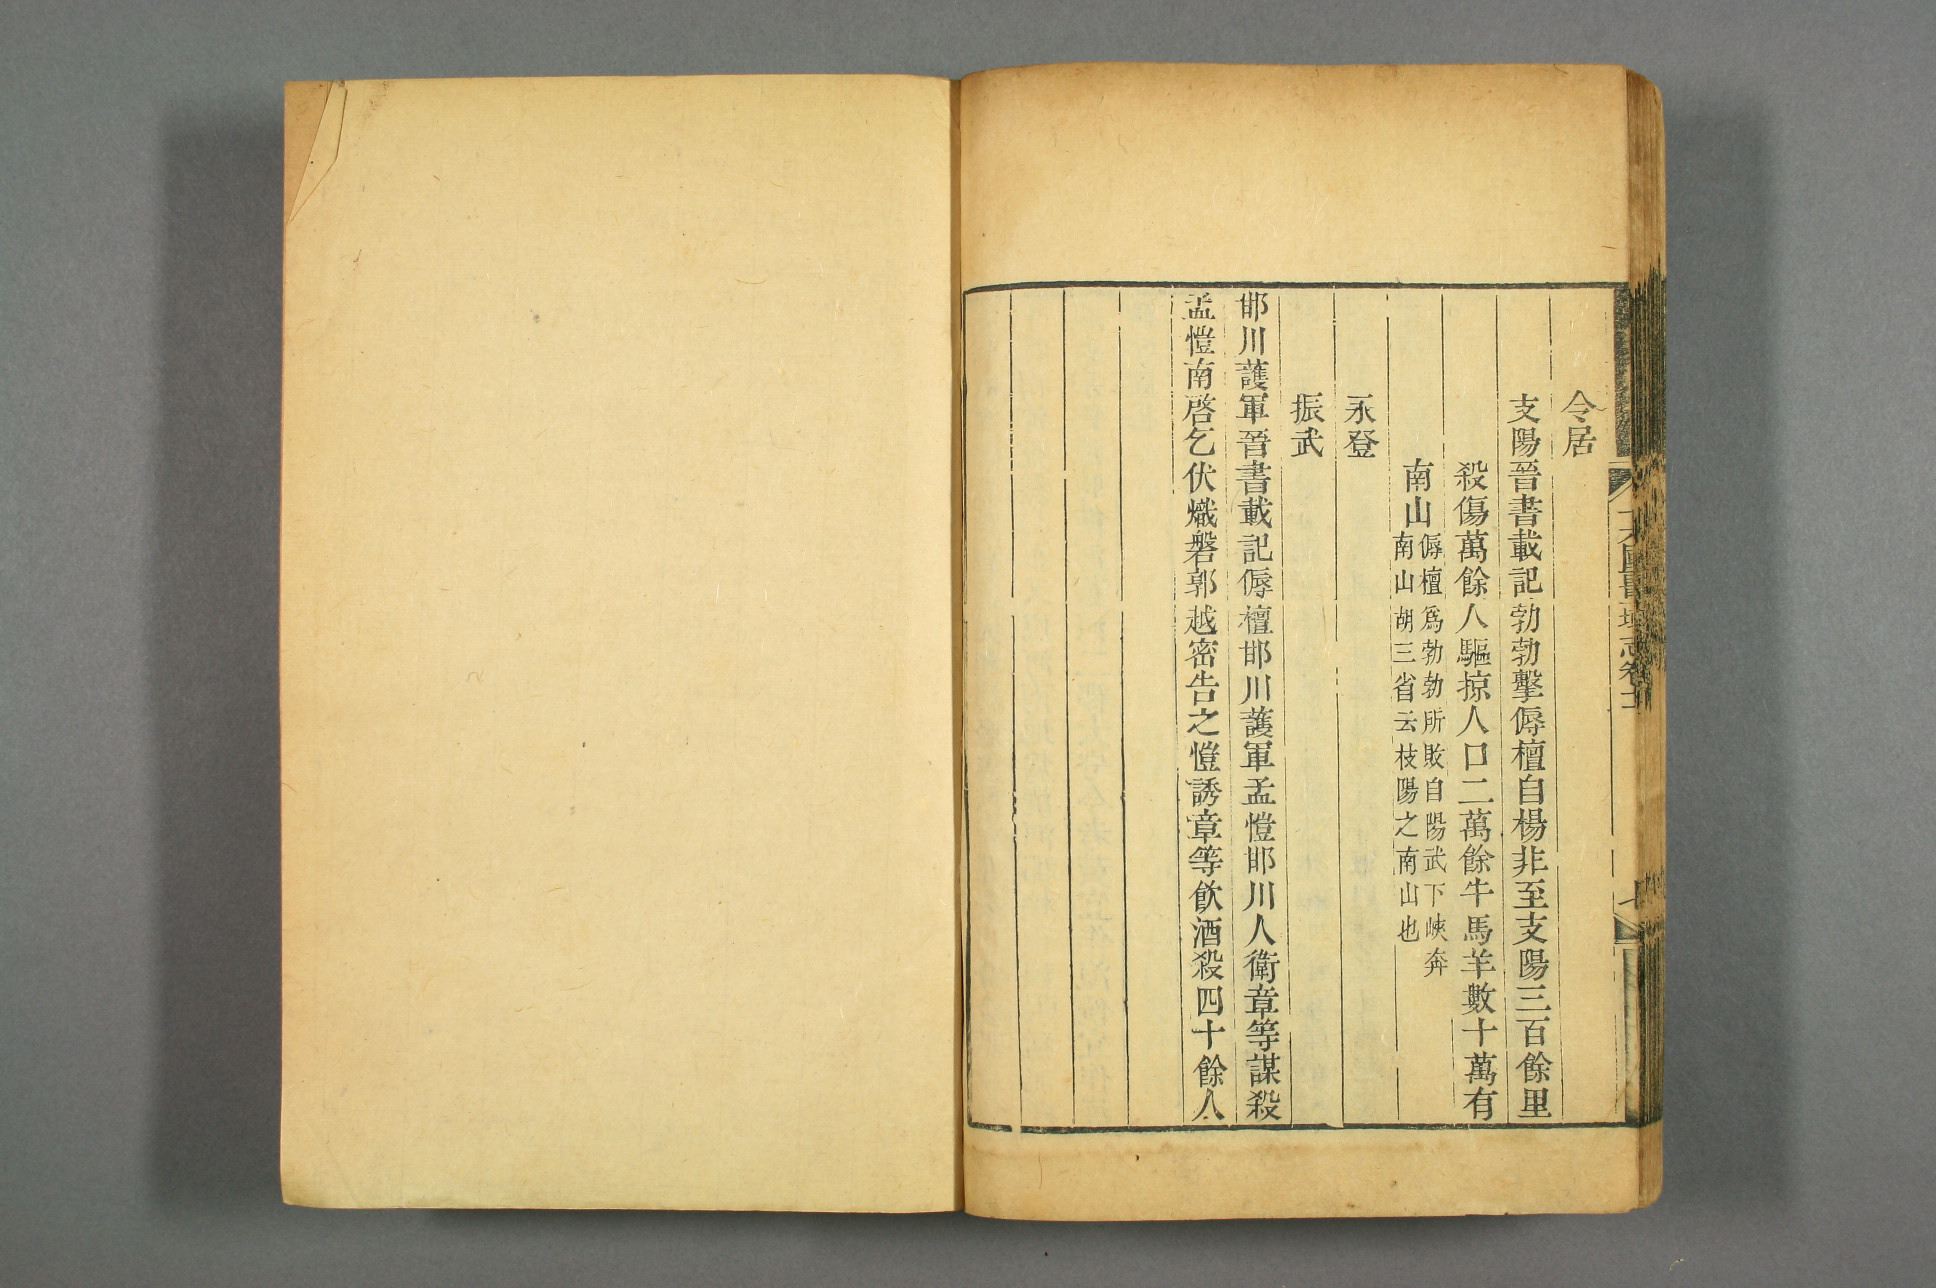 令居
支陽晉書載記勃勃擊傉檀自楊非至支陽三百餘里
殺傷萬餘人驅掠人口二萬餘牛馬羊數十萬有
南山傉檀爲勃勃所敗自陽武下峽奔
南山胡三省云枝陽之南山也
永登
振武
邯川護軍晉書載記傉檀邯川護軍孟愷邯川人衛章等謀殺
孟愷南啓乞伏熾磐郭越密告之愷誘章等飲酒殺四十餘人
十六國疆域志卷十